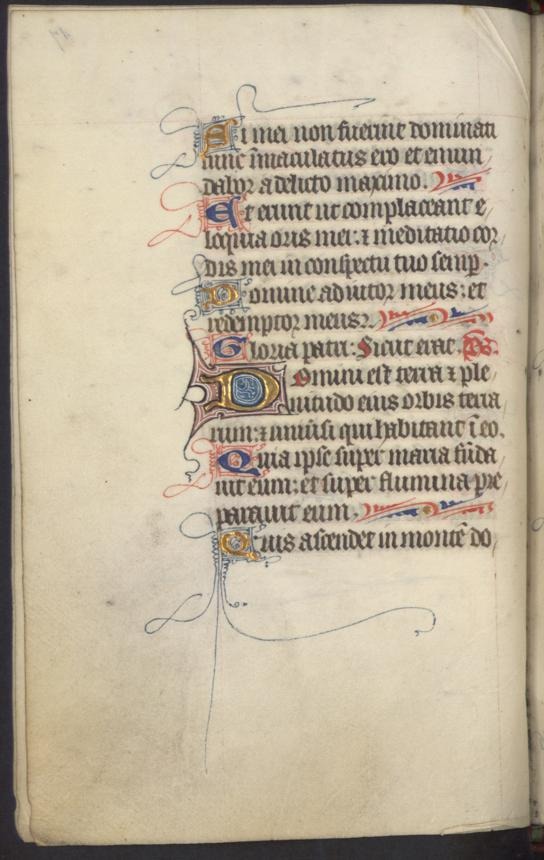 Si mei non fuerint dominati
tunc īmaculatus ero et emun
dabor a delicto maximo.
Et erunt ut complaceant e
loquia oris mei: ⁊ meditatio cor
dis mei in conspectu tuo semp.
Domine adiutor meus: et
redemptor meus.
Gloria patri. Sicut erat. ps.
Domini est terra ⁊ ple
nitudo eius orbis terra
rum: ⁊ uniūsi qui habitant ī eo.
Quia ipse super maria fūda
uit eum: et super flumina pre
parauit eum.
Quis ascendet in montē do